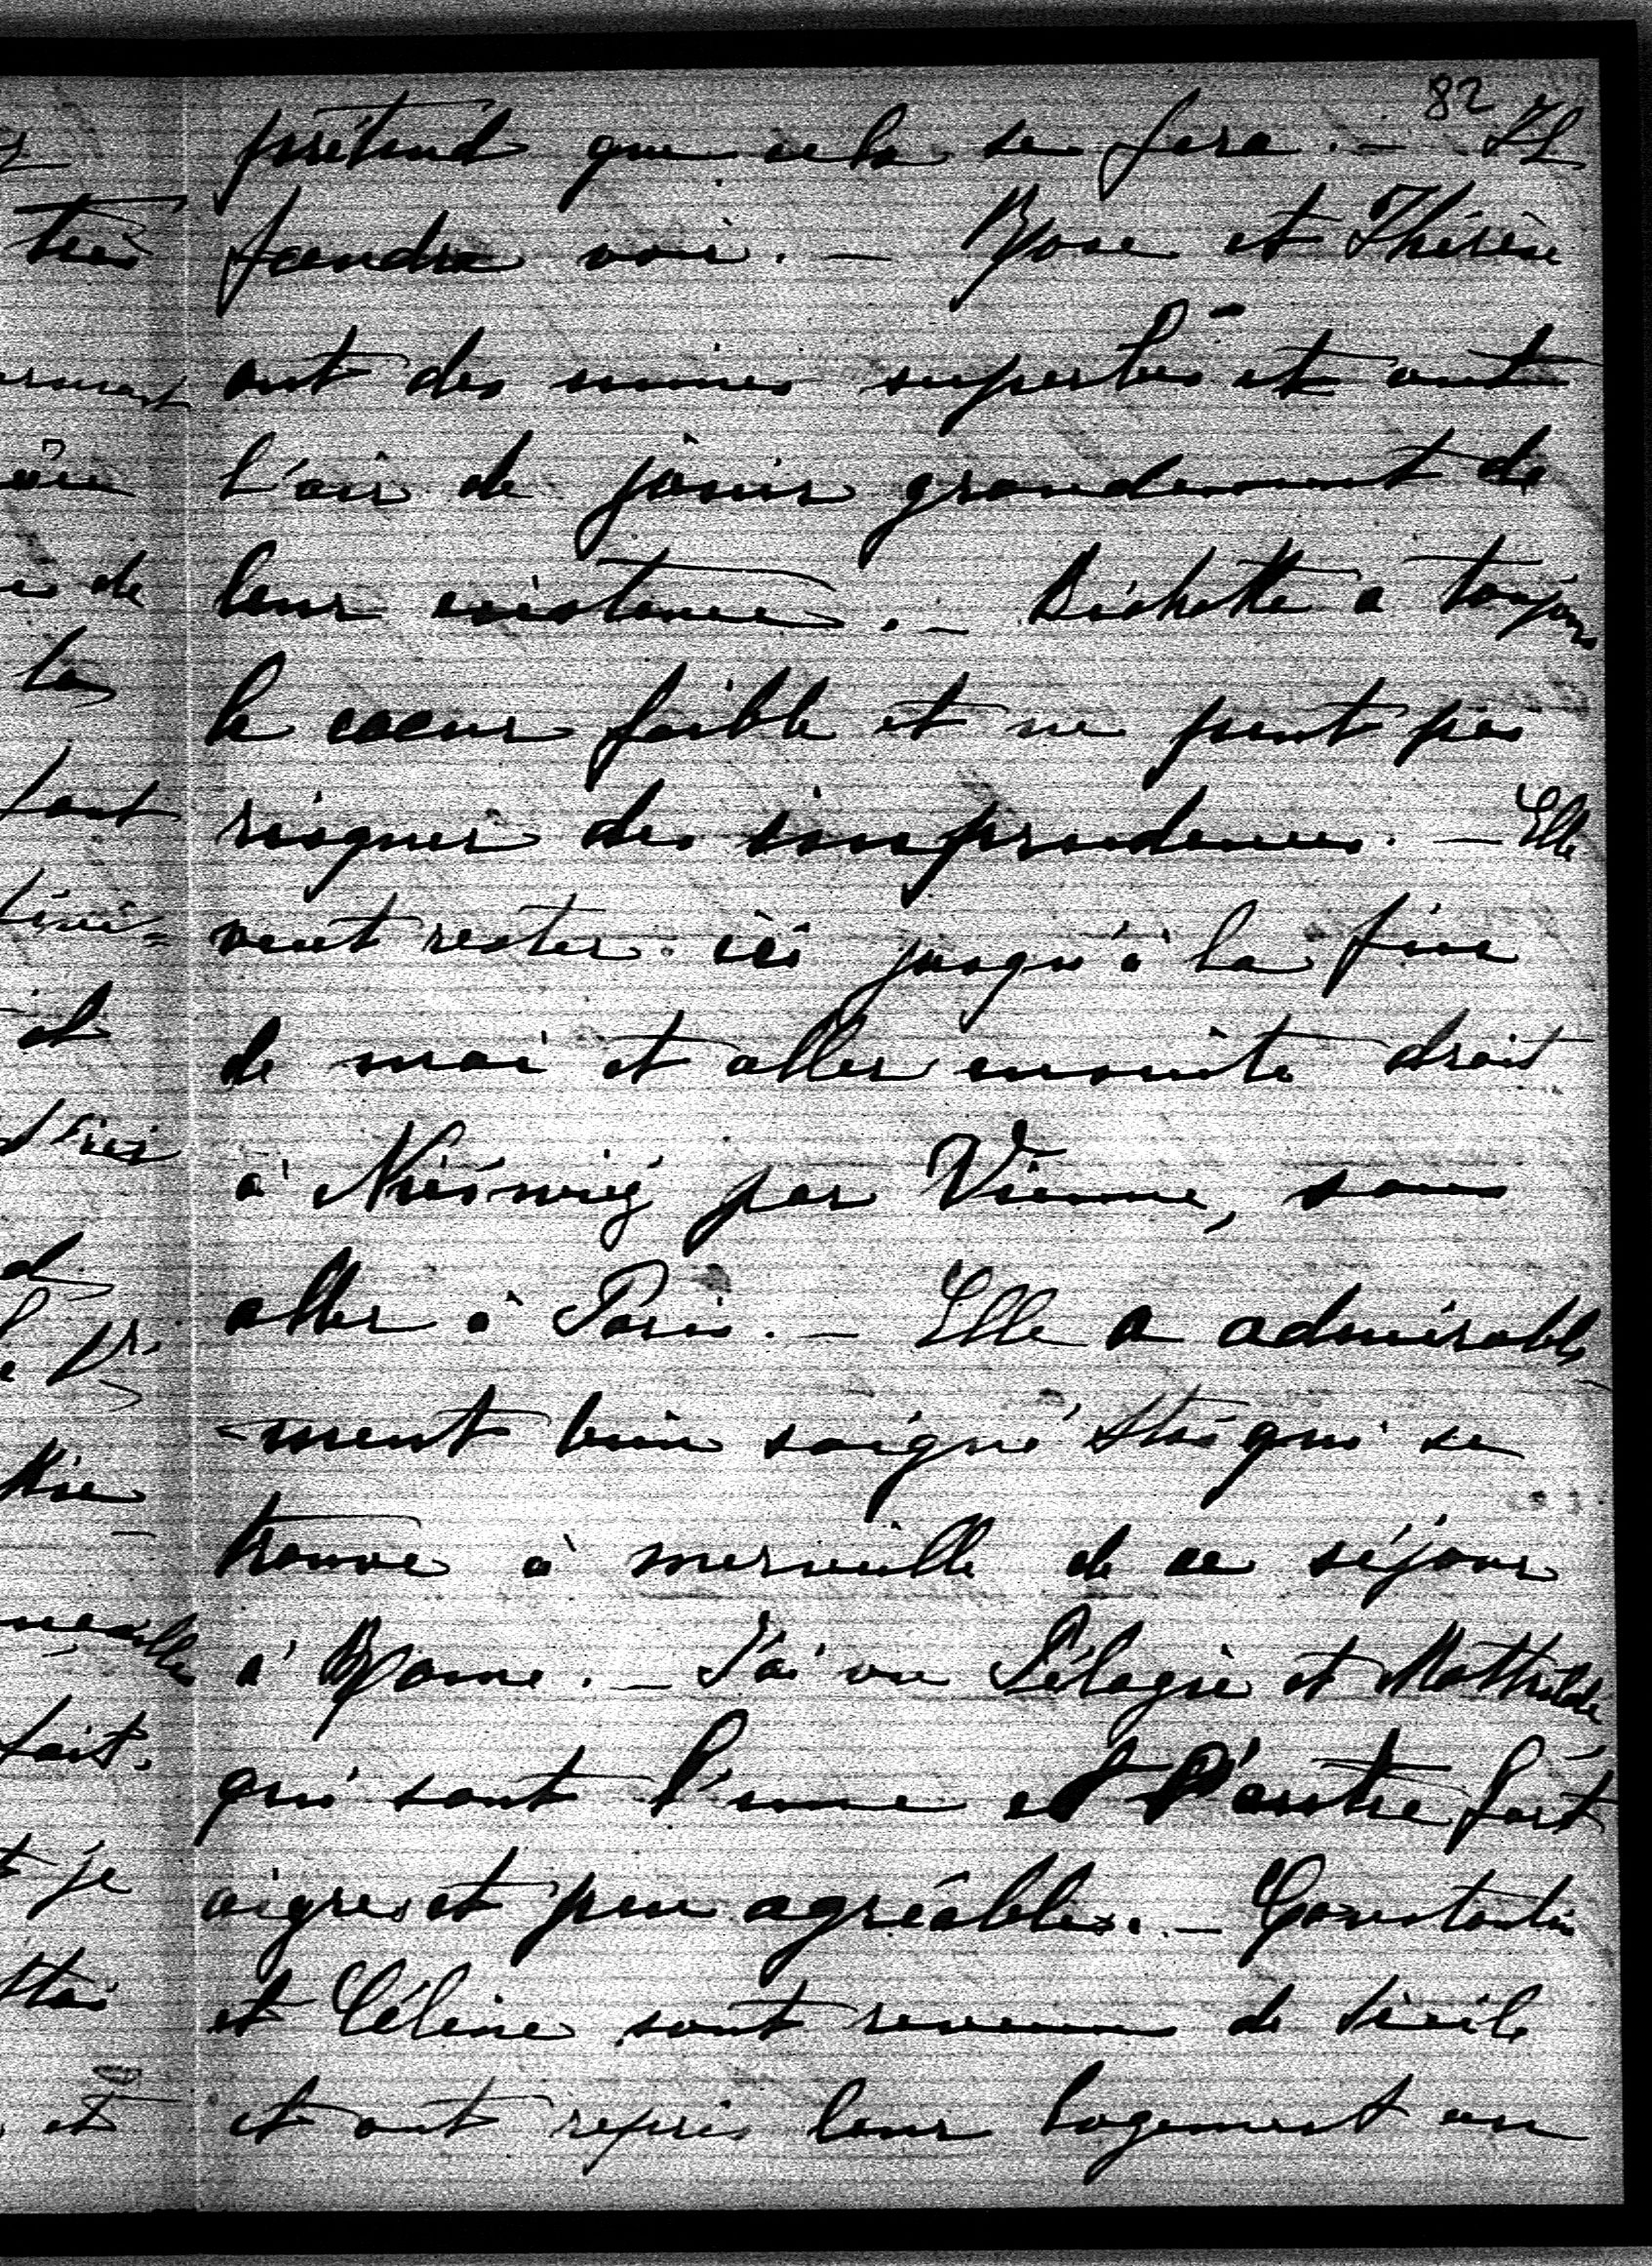 82
prétend que cela se fera. — Il
faudra voir. — Rose et Thérèse
ont des mines superbes et ont
l'air de jouir grandement de
leur existence. — Bichette a toujours
le coeur faible et ne peut pas
risquer des imprudences. — Elle
veut rester ici jusqu'à la fin
de mai et aller ensuite droit
à Nieśwież par Vienne, sans
aller à Paris. — Elle a admirable-
-ment bien soigné Staś qui se
trouve à merveille de ce séjour
à Rome. — J'ai vu Pélagie et Mathilde,
qui sont l'une et l'autre fort
aigres et peu agréables. — Constantin
et Céline sont revenus de Sicile
et ont repris leur logement au